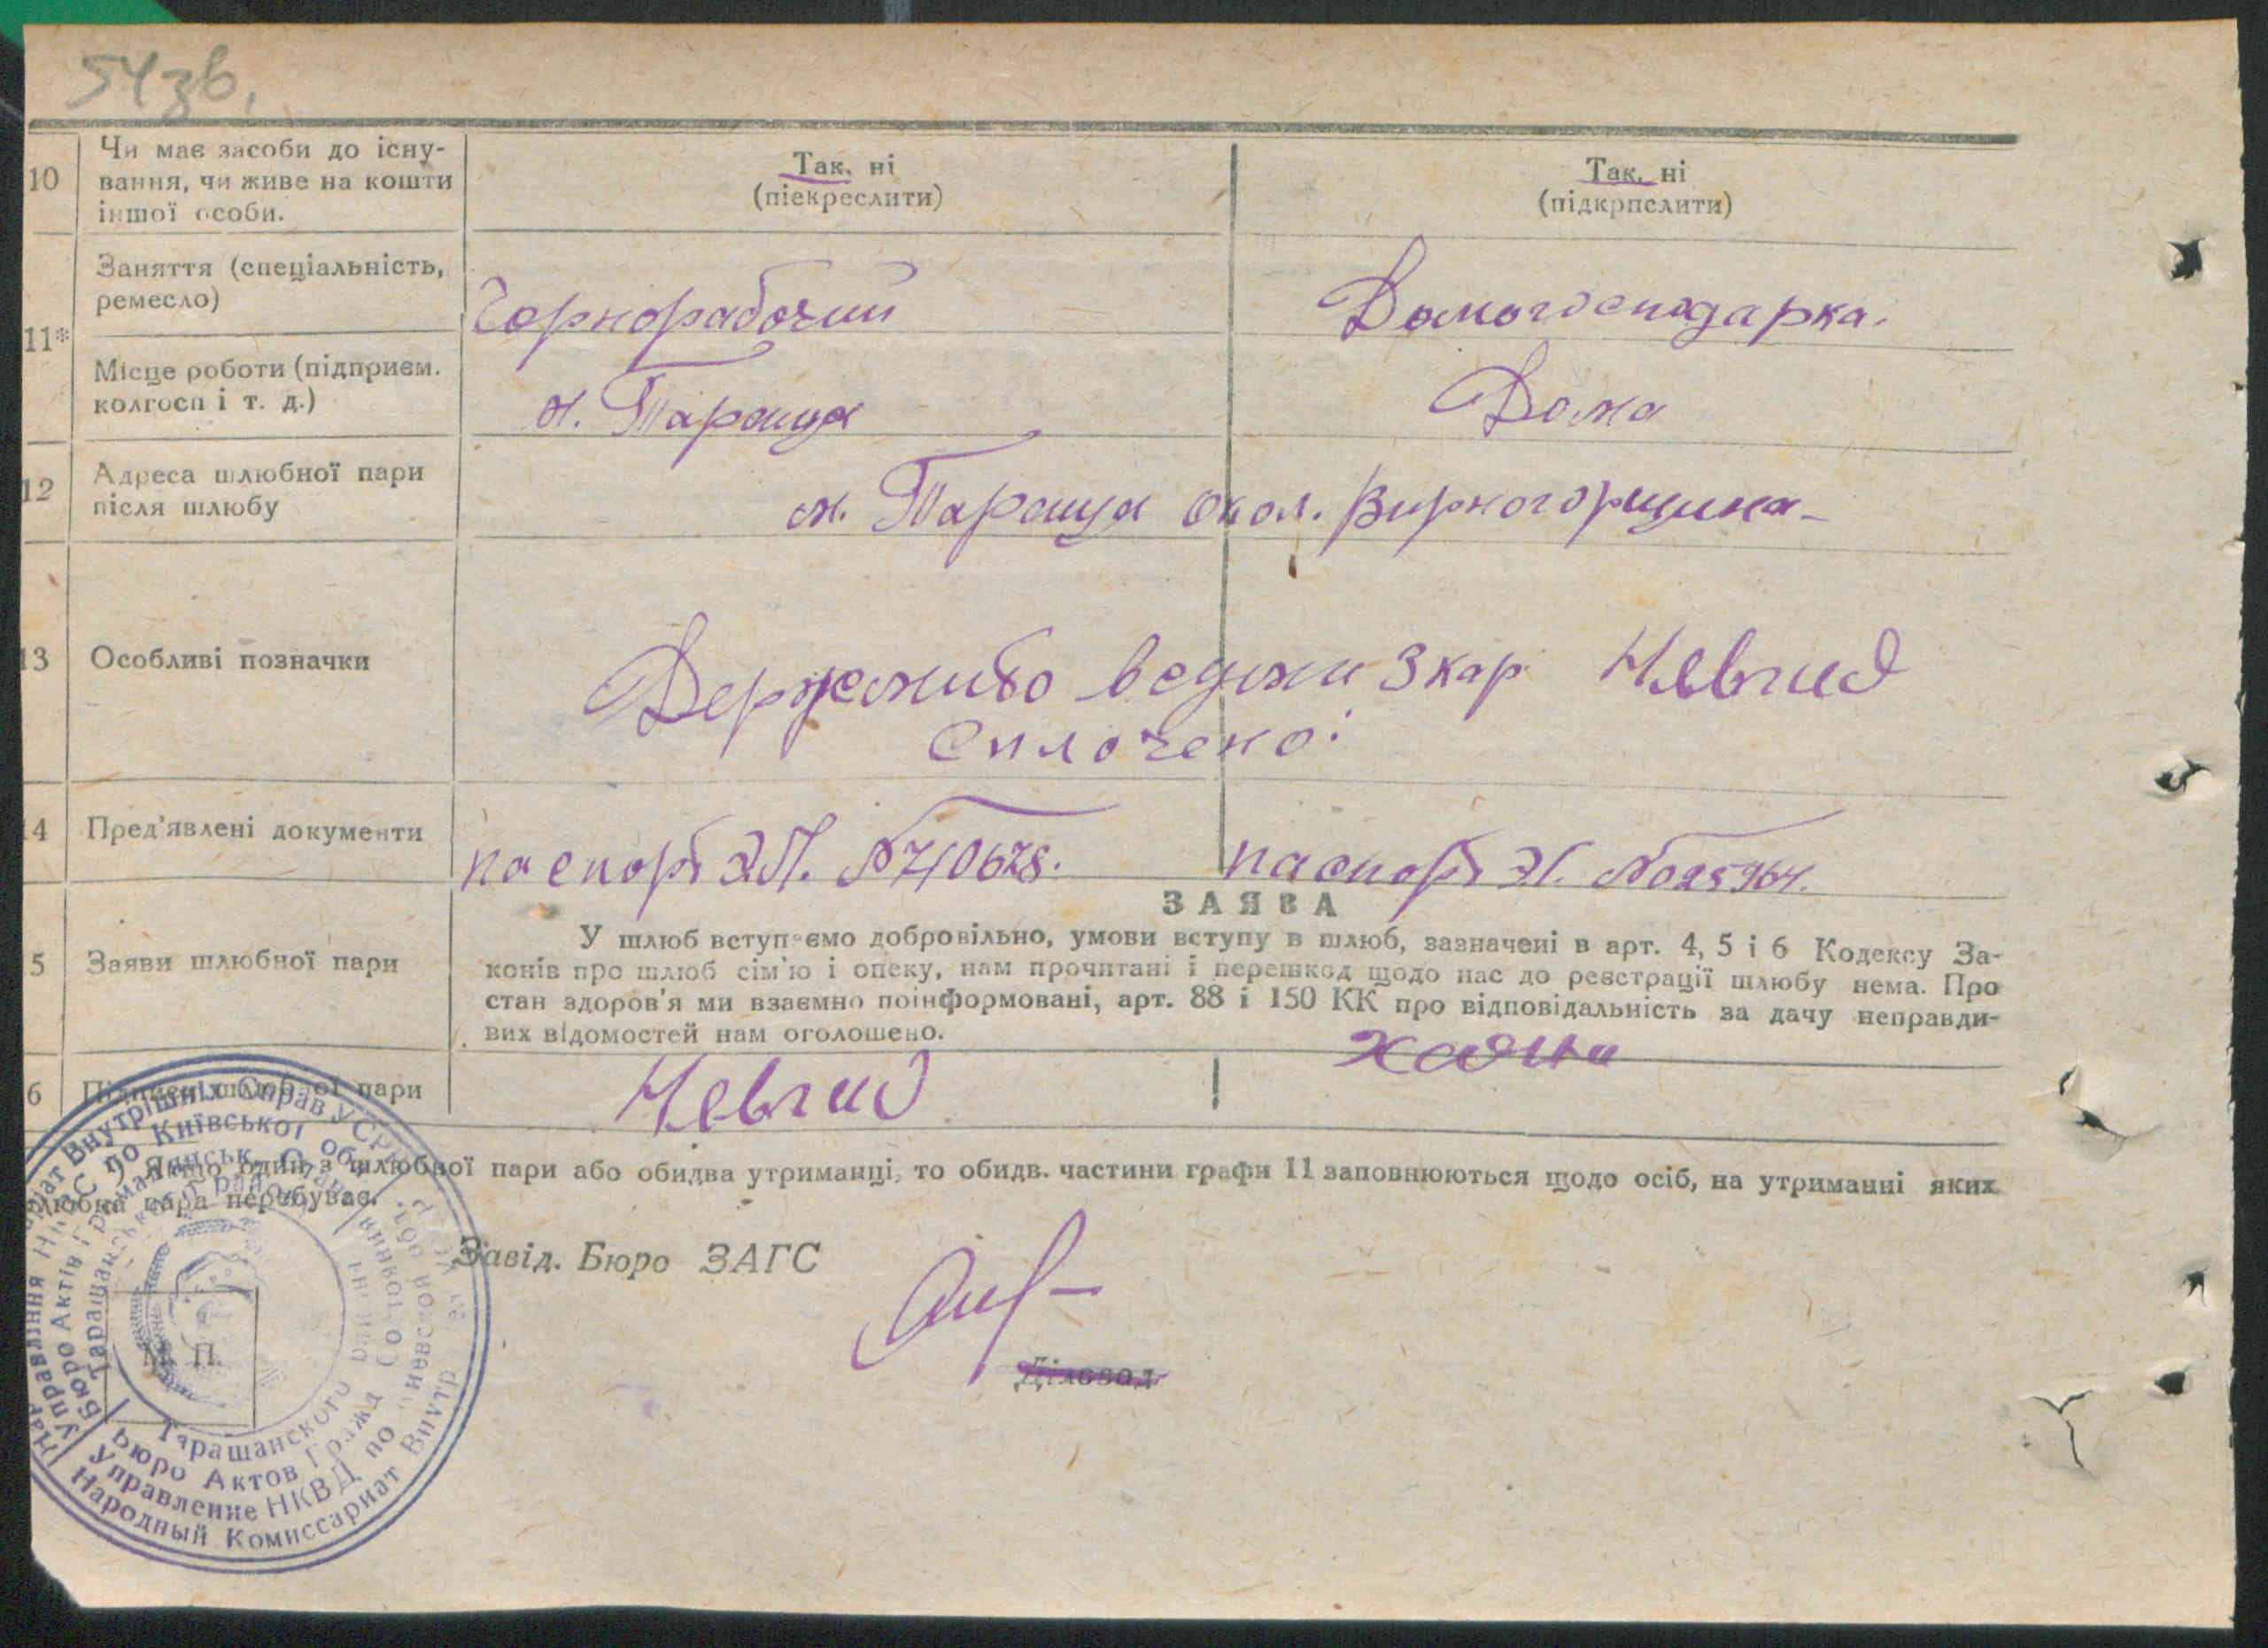 54зв.
10
Чи має засоби до існу-
вання, чи живе на кошти
іншої особи.
Так, ні
(піекреслити)
Так, ні
(підкрпслити)
11*
Заняття (спеціальність,
ремесло)
Чорнорабочий
Домогосподарка.
Місце роботи (підприєм.
колгосп і т. д.)
м. Тараща
Дома
12
Адреса шлюбної пари
після шлюбу
м. Тараща окол.
13
Особливі позначки
3 кар
Сплочено
4
Пред'явлені документи
паспорт ЭП. № 710628.
паспорт
5
Заяви шлюбної пари
ЗАЯВА
У шлюб вступаємо добровільно, умови вступу в шлюб, зазначені в арт. 4, 5 і 6 Кодексу За-
конів про шлюб сім'ю і опеку, нам прочитані і перешкод щодо нас до реєстрації шлюбу нема. Про
стан здоров'я ми взаємно поінформовані, арт. 88 і 150 КК про відповідальність за дачу неправди-
вих відомостей нам оголошено.
6
Підписи шлюбної пари
Якщо один з шлюбної пари або обидва утриманці, то обидв. частини графи 11 заповнюються щодо осіб, на утриманні яких
шлюбна пара перебуває.
Завід. Бюро ЗАГС
Діловод
М. П.
Таращанского
Бюро Актов Гражд
Управление НКВД по
Народный Комиссариат Внутр